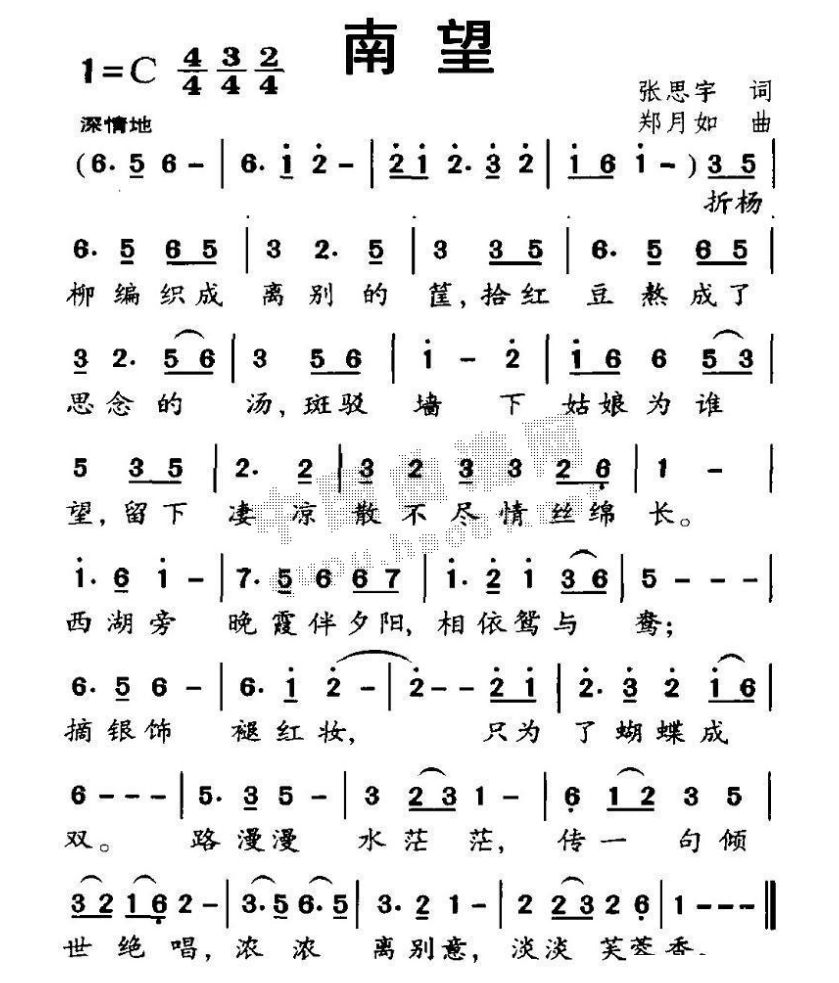 南望
1=C 4/4 3/4 2/4
张思宇 词
深情地
郑月如 曲
(6. 5 6 - | 6. i 2 - | 2 i 2. 3 2 | i 6 i - ) 3 5 |
折杨
6. 5 6 5 | 3 2. 5 | 3 3 5 | 6. 5 6 5 |
柳编织成 离别的筐,拾红 豆熬成了
3 2. 5 6 | 3 5 6 | i - 2 | i 6 6 5 3 |
思念的 汤,斑驳 墙 下 姑娘为谁
5 3 5 | 2. 2 | 3 2 3 3 2 6 | 1 - |
望,留下 凄 凉 散不尽情丝绵 长。
i. 6 i - | 7. 5 6 6 7 | i. 2 i 3 6 | 5 - - - |
西湖旁 晚霞伴夕阳,相依鸳与 鸯;
6. 5 6 - | 6. i 2 - | 2 - - 2 i | 2. 3 2 i 6 |
摘银饰 褪红妆, 只为 了蝴蝶成
6 - - - | 5. 3 5 - | 3 2 3 1 - | 6 1 2 3 5 |
双。 路漫漫 水茫茫, 传一句倾
3 2 1 6 2 - | 3. 5 6. 5 | 3. 2 1 - | 2 2 3 2 6 | 1 - - - ‖
世绝唱,浓浓 离别意,淡淡芙蓉香.